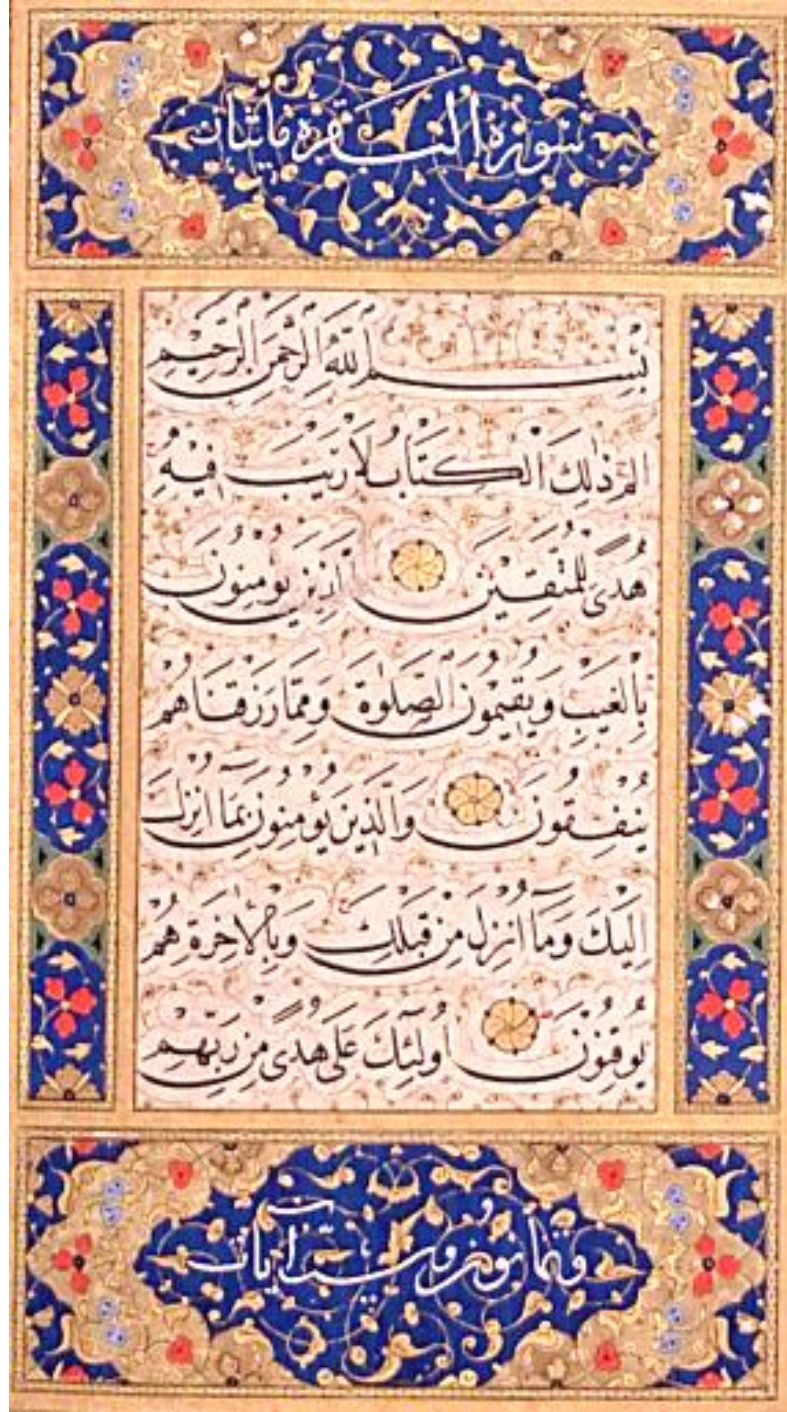 سورة البقره مائتان
بِسْمِ اللَّهِ الرَّحْمَنِ الرَّحِيمِ
الم ذٰلِكَ الْكِتَابُ لَا رَيْبَ فِيهِ
هُدًى لِلْمُتَّقِينَ الَّذِينَ يُؤْمِنُونَ
بِالْغَيْبِ وَيُقِيمُونَ الصَّلٰوةَ وَمِمَّا رَزَقْنَاهُمْ
يُنْفِقُونَ وَالَّذِينَ يُؤْمِنُونَ بِمَآ اُنْزِلَ
اِلَيْكَ وَمَآ اُنْزِلَ مِنْ قَبْلِكَ وَبِالْاٰخِرَةِ هُمْ
يُوقِنُونَ اُولٰٓئِكَ عَلٰى هُدًى مِنْ رَبِّهِمْ
وثمانون وست آيات